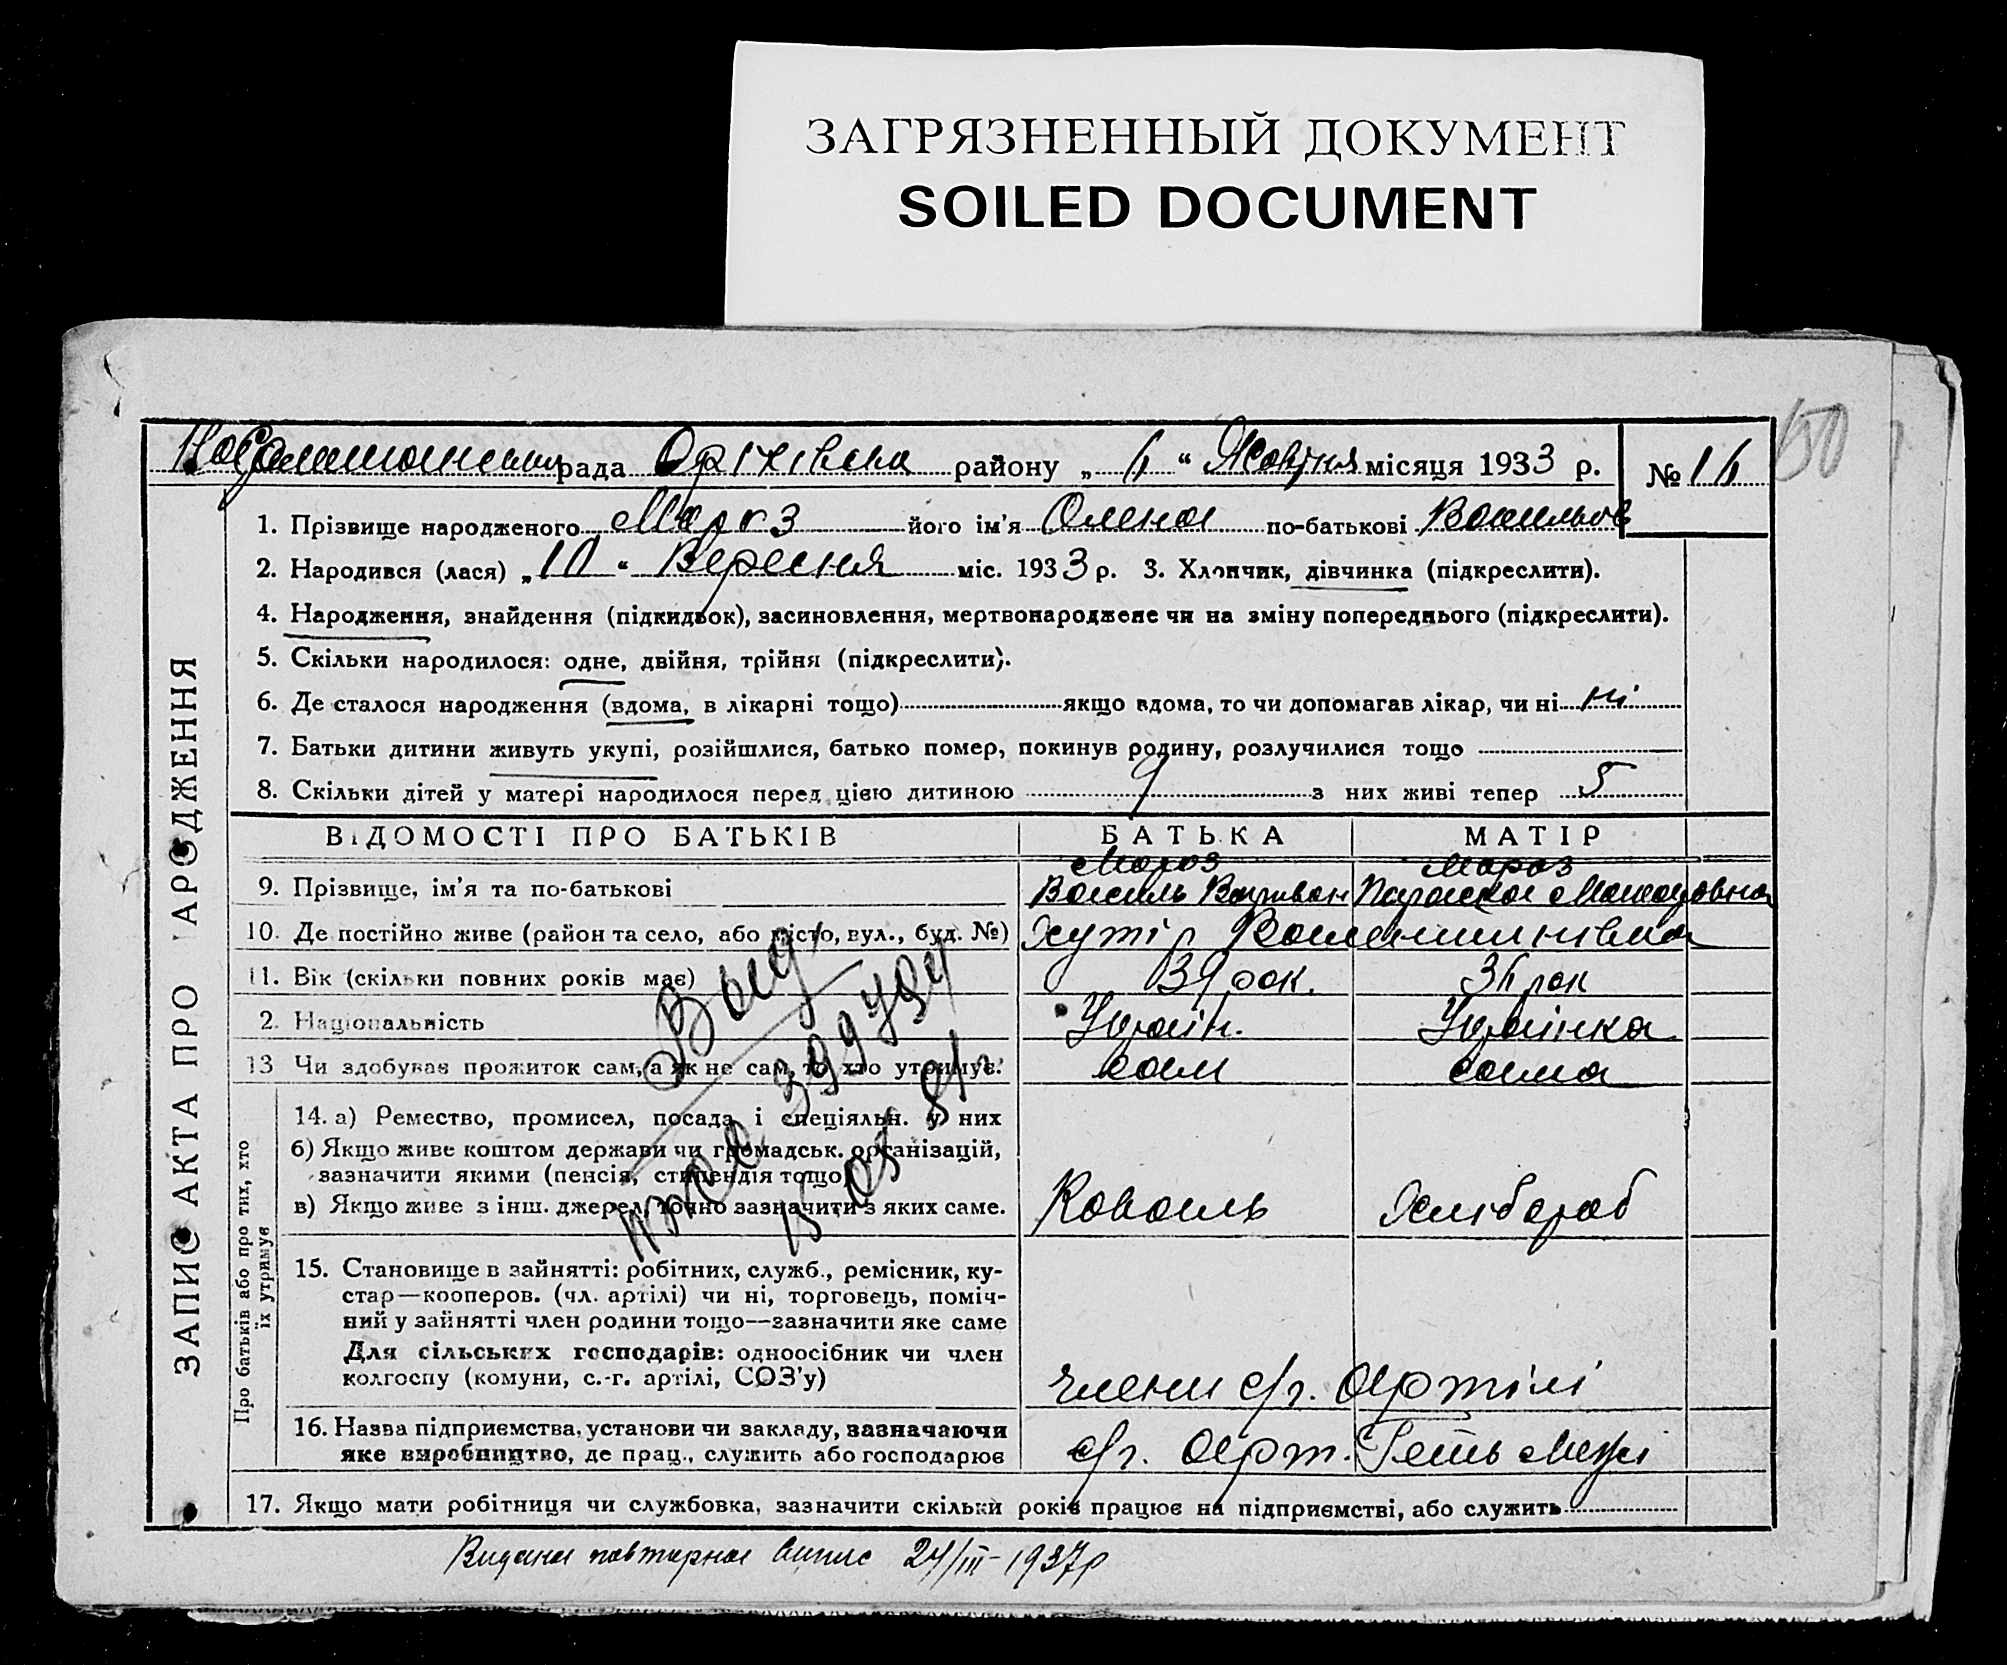 ЗАГРЯЗНЕННЫЙ ДОКУМЕНТ
SOILED DOCUMENT
50
рада Оріхівська району „ 6 “ Жовтня місяця 1933 р. № 16
1. Прізвище народженого Мороз його ім'я Олена по-батькові Васильов
2. Народився (лася) „ 10 “ Вересня міс. 1933 р. 3. Хлопчик, дівчинка (підкреслити).
4. Народження, знайдення (підкидьок), засиновлення, мертвонароджене чи на зміну попереднього (підкреслити).
5. Скільки народилося: одне, двійня, трійня (підкреслити).
6. Де сталося народження (вдома, в лікарні тощо) якщо вдома, то чи допомагав лікар, чи ні ні
7. Батьки дитини живуть укупі, розійшлися, батько помер, покинув родину, розлучилися тощо
8. Скільки дітей у матері народилося перед цією дитиною 9 з них живі тепер 5
ВІДОМОСТІ ПРО БАТЬКІВ БАТЬКА МАТІР
9. Прізвище, ім'я та по-батькові Мороз Василь Мороз Параска
10. Де постійно живе (район та село, або місто, вул., буд. №) Хутір
11. Вік (скільки повних років має) 39 рок. 36 рок
2. Національність Україн. Українка
13 Чи здобував прожиток сам, а як не сам, то хто утримує. сам сама
Про батьків або про тих, хто їх утримує
14. а) Ремество, промисел, посада і спеціяльн. у них
б) Якщо живе коштом держави чи громадськ. організацій,
зазначити якими (пенсія, стипендія тощо)
в) Якщо живе з інш. джерел, точно зазначити з яких саме. Коваль Хлібороб
15. Становище в зайнятті: робітник, служб., ремісник, ку-
стар—кооперов. (чл. артілі) чи ні, торговець, поміч-
ний у зайнятті член родини тощо—зазначити яке саме
Для сільських господарів: одноосібник чи член
колгоспу (комуни, с.-г. артілі, СОЗ'у) члени с/г. Артілі
16. Назва підприємства, установи чи закладу, зазначаючи
яке виробництво, де прац., служить або господарює с/г. Арт. Геть Межі
17. Якщо мати робітниця чи службовка, зазначити скільки років працює на підприємстві, або служить
ЗАПИС АКТА ПРО НАРОДЖЕННЯ
399794
Видана повторна випис 24/III-1937р